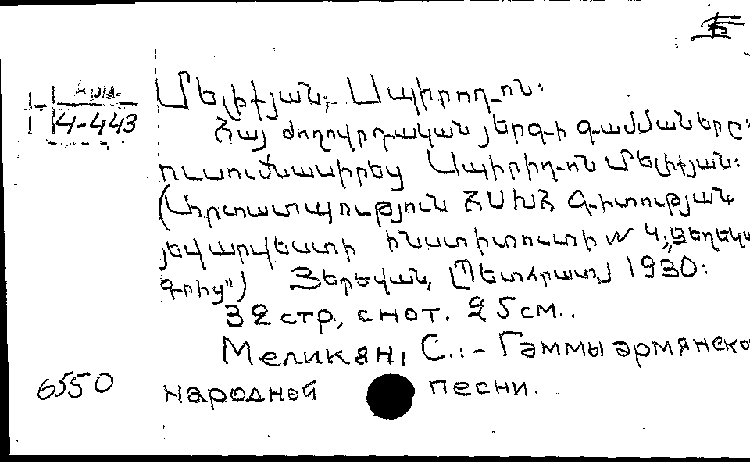 Արտ.
4-443
Մելիքյան, Սպիրիդոն:
Հայ ժողովրդական յերգի գամմաները:
ուսումնասիրեց Սպիրիդոն Մելիքյան:
(Արտատպություն ՀՍԽՀ Գիտության
յեվ արվեստի ինստիտուտի № 4, „Տեղեկա
գրից") Յերեվան, [Պետհրատ] 1930:
32 стр, с нот. 25 см..
Меликян, С.:- Гаммы армянско
6550
народной песни.